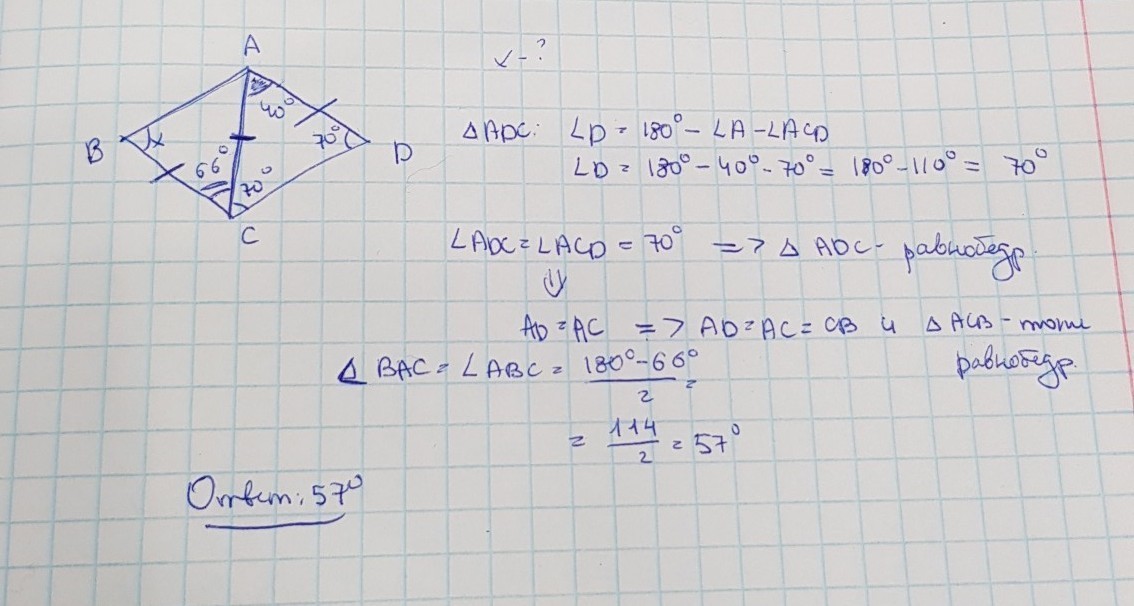 A
∠-?
40°
70°
B
x
D
66°
70°
C
△ADC: ∠D = 180° - ∠A - ∠ACD
∠D = 180° - 40° - 70° = 180° - 110° = 70°
∠ADC = ∠ACD = 70° => △ ADC - равнобедр.
⇓
AD = AC => AD = AC = CB и △ ACB - тоже
равнобедр.
∠ BAC = ∠ABC = 180° - 66° / 2 =
= 114 / 2 = 57°
Ответ: 57°